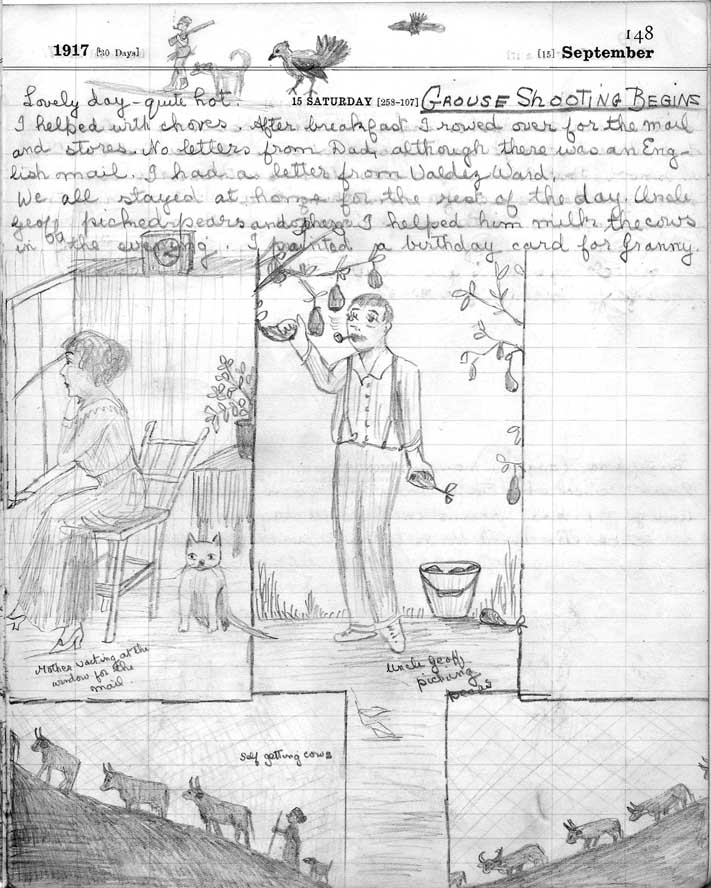 148
1917 [30 Days] [15] September
15 SATURDAY [258-107] GROUSE SHOOTING BEGINS
Lovely day - quite hot.
I helped with chores. After breakfast I rowed over for the mail
and stores. No letters from Dad, although there was an Eng-
lish mail. I had a letter from Valdez Ward.
We all stayed at home for the rest of the day. Uncle
Geoff picked pears and I helped him milk the cows
in the evening. I painted a birthday card for Granny.
Mother waiting at the
window for the
mail.
Uncle Geoff
picking
pears
Self getting cows